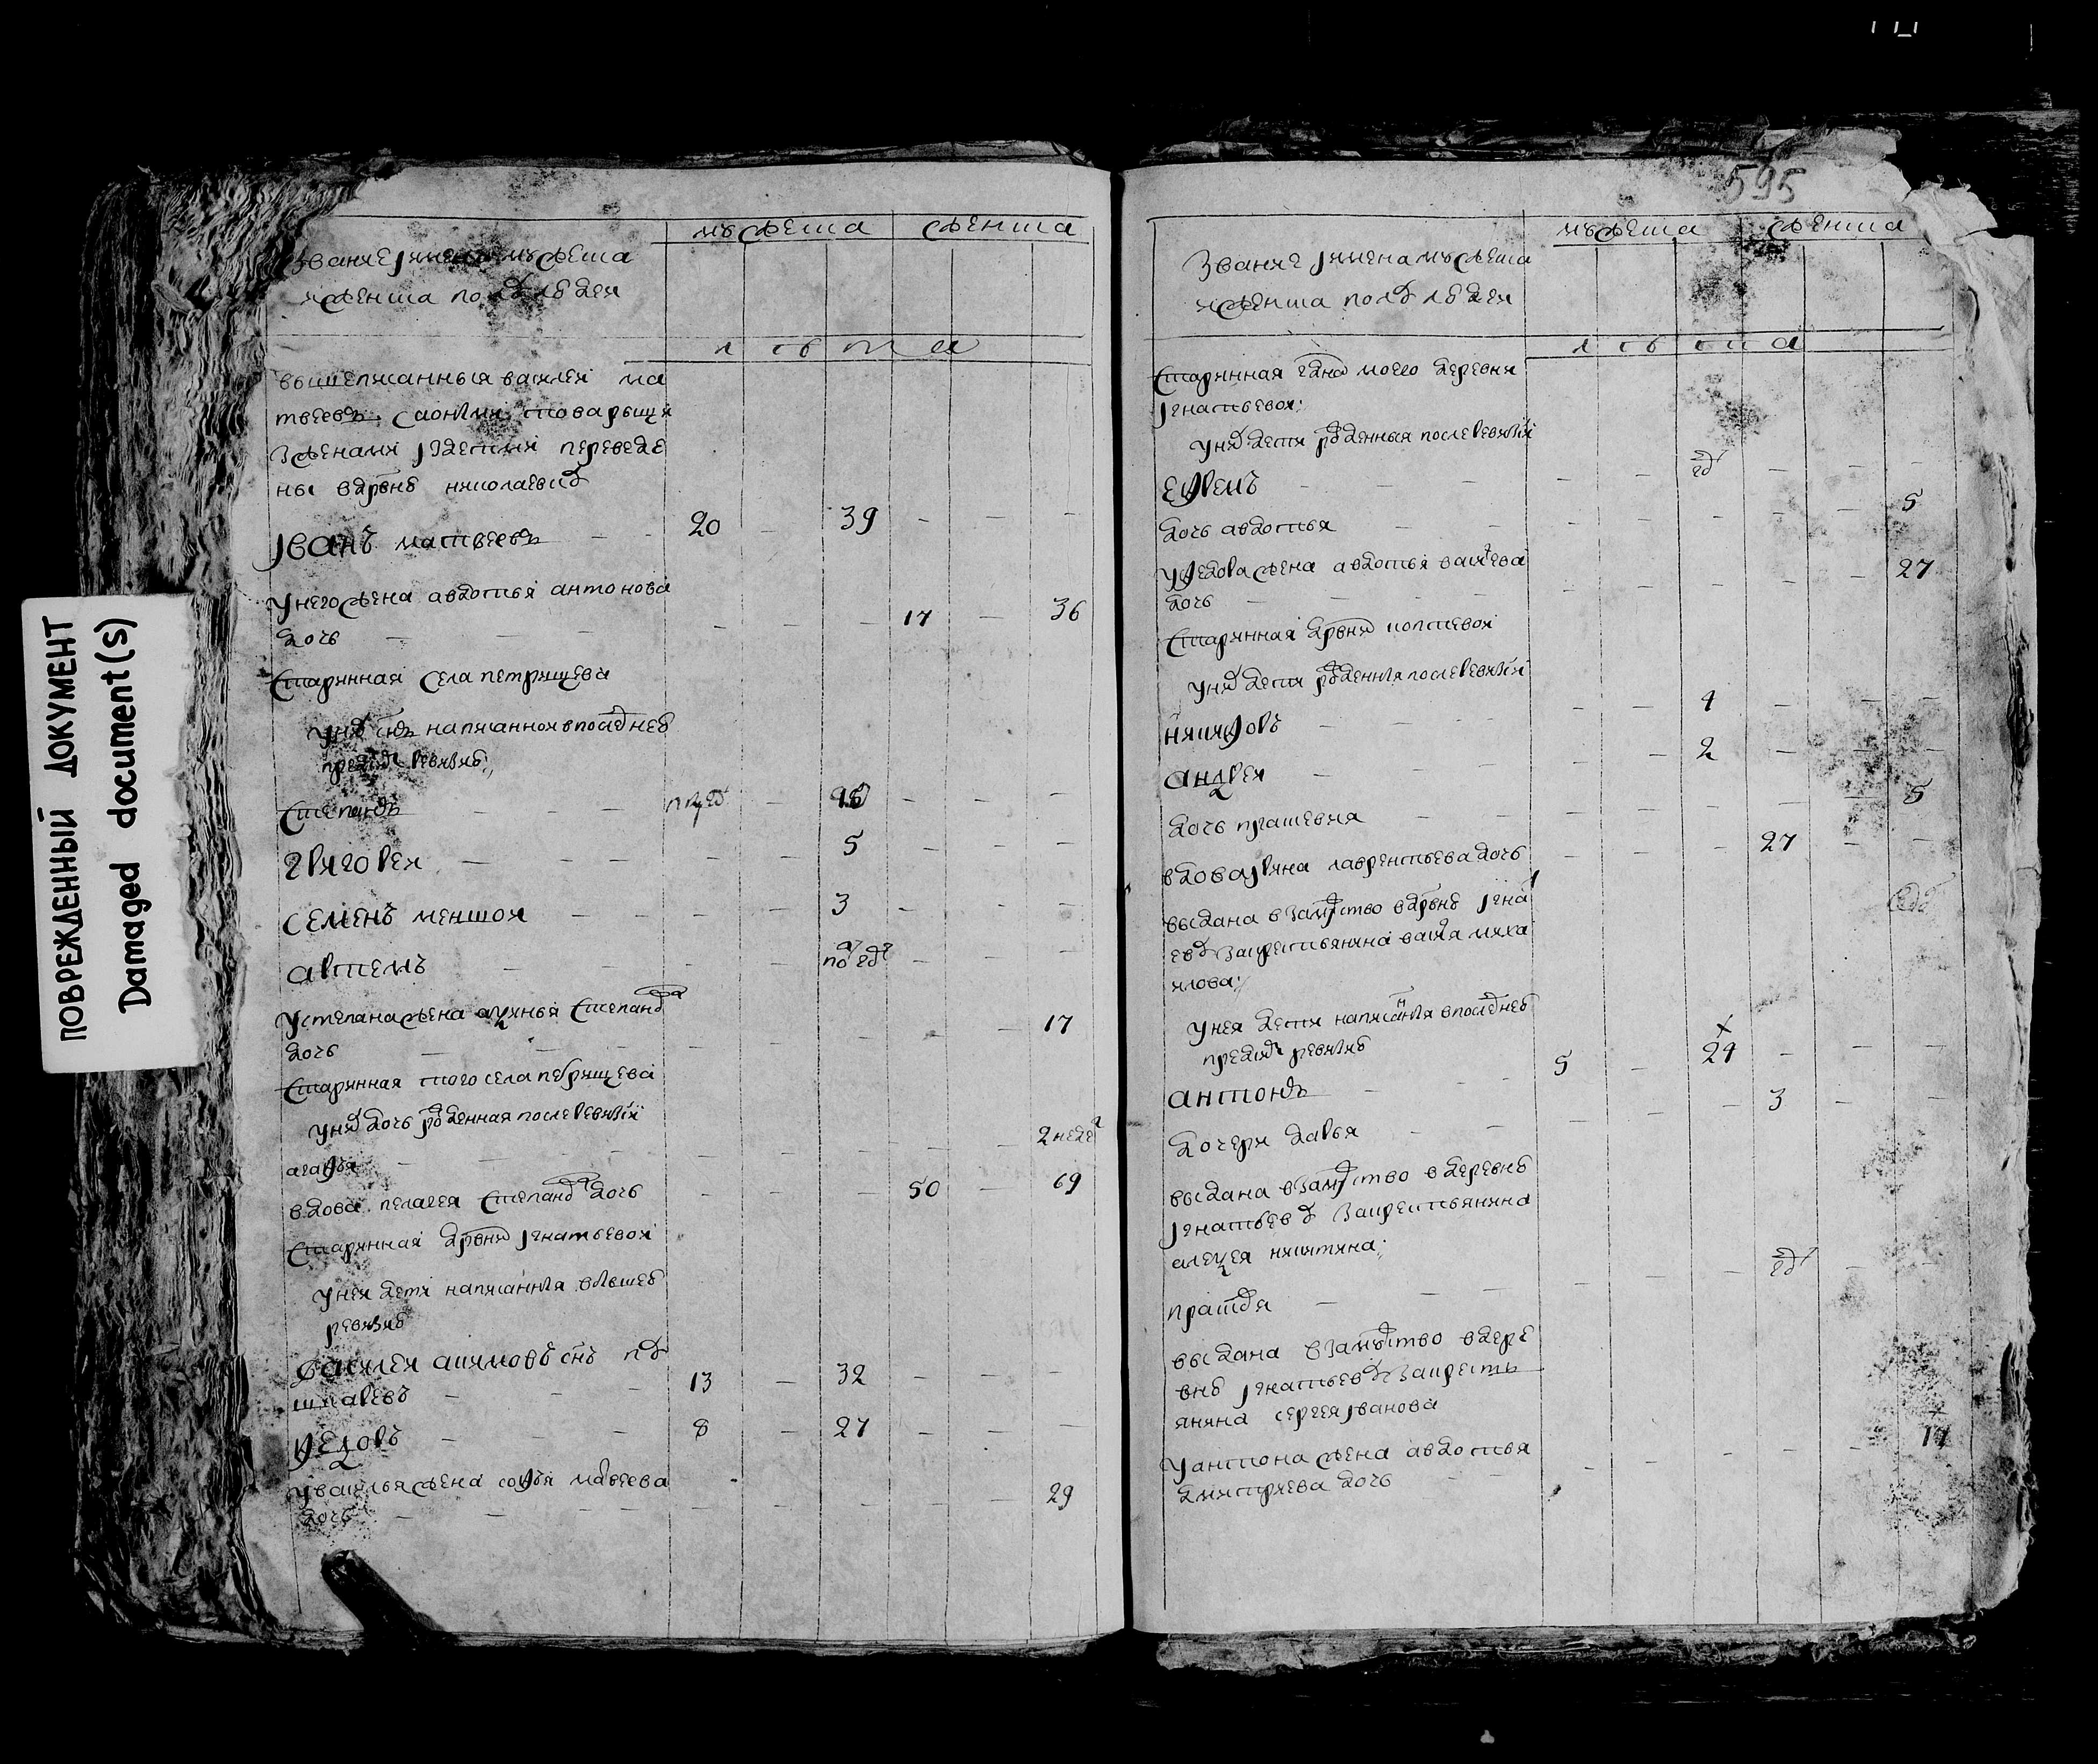 ПОВРЕЖДЕННЫЙ ДОКУМЕНТ
Damaged document(s)
мужеска женска
звание имена мужеска
и женска полу людей
лета
вышеписанныя василеи ма
твеевъ с
з женами и з детми переведе
ны в дрвню николаевску
Иванъ матвеевъ 20 39
у него жена авдотья антонова
дочь 17 36
старинная села петрищева
у них снъ написанной в последнеи
пред ревизии
степанъ
григореи 5
семенъ меншои 3
артемъ по
у степана жена степанова
дочь 17
старинная того села петрищева
у них дочь рожденная после ревизии
агафья 2 неде
вдова пелагея степанова дочь 50 69
старинная дрвни игнатьевои
у неи дети написанныя в бывшеи
ревизии
василеи акимовъ снъ
13 32
федоръ 8 27
у василья жена софья матвеева
дочь 29
595
мужеска женска
звание имена мужеска
и женска полу людей
лета
старинная моего деревни
игнатьевои
у них дети рожденныя после ревизии
ефремъ
дочь авдотья 5
у федора жена авдотья васильева
дочь 27
старинная дрвни
у них дети рожденныя после ревизии
никифоръ 4
андреи 2
дочь прасковия 5
вдова ирина лаврентьева дочь 27
выдана в замужство в дрвню игна
еву за крестьянина василя миха
илова
у неи дети написанныя в последнеи
пред ревизии
антонъ 5 24
дочери дарья 3
выдана в замужство в деревню
игнатьеву за крестьянина
алексея никитина
прасковя
выдана в замужство в дере
вню игнатьеву за кресть
янина сергея иванова
у антона жена авдотья
дмитриева дочь